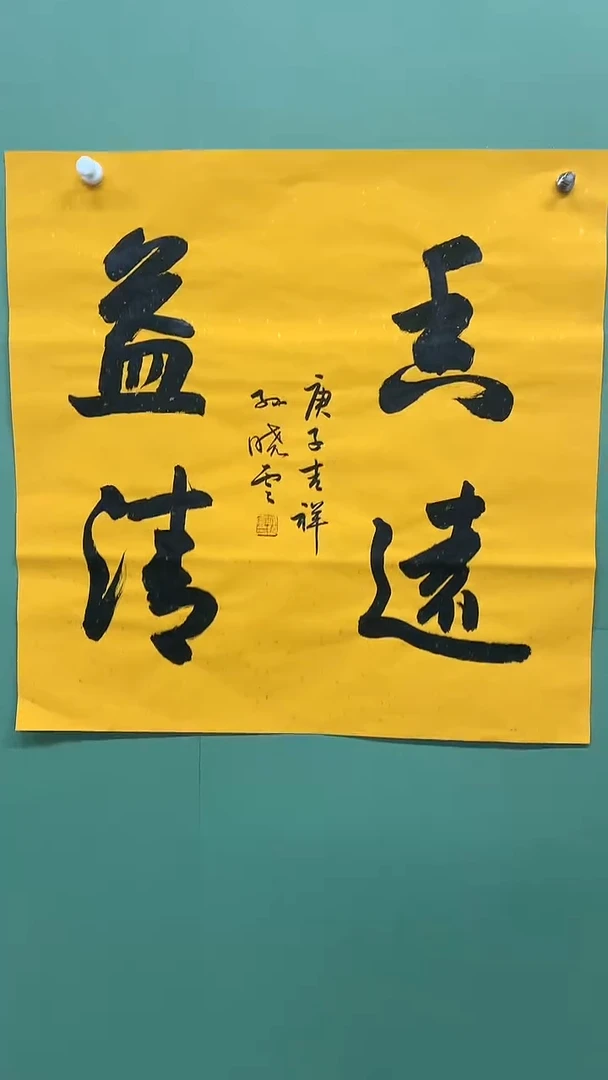 香遠
益清
庚子吉祥
孙晓雲